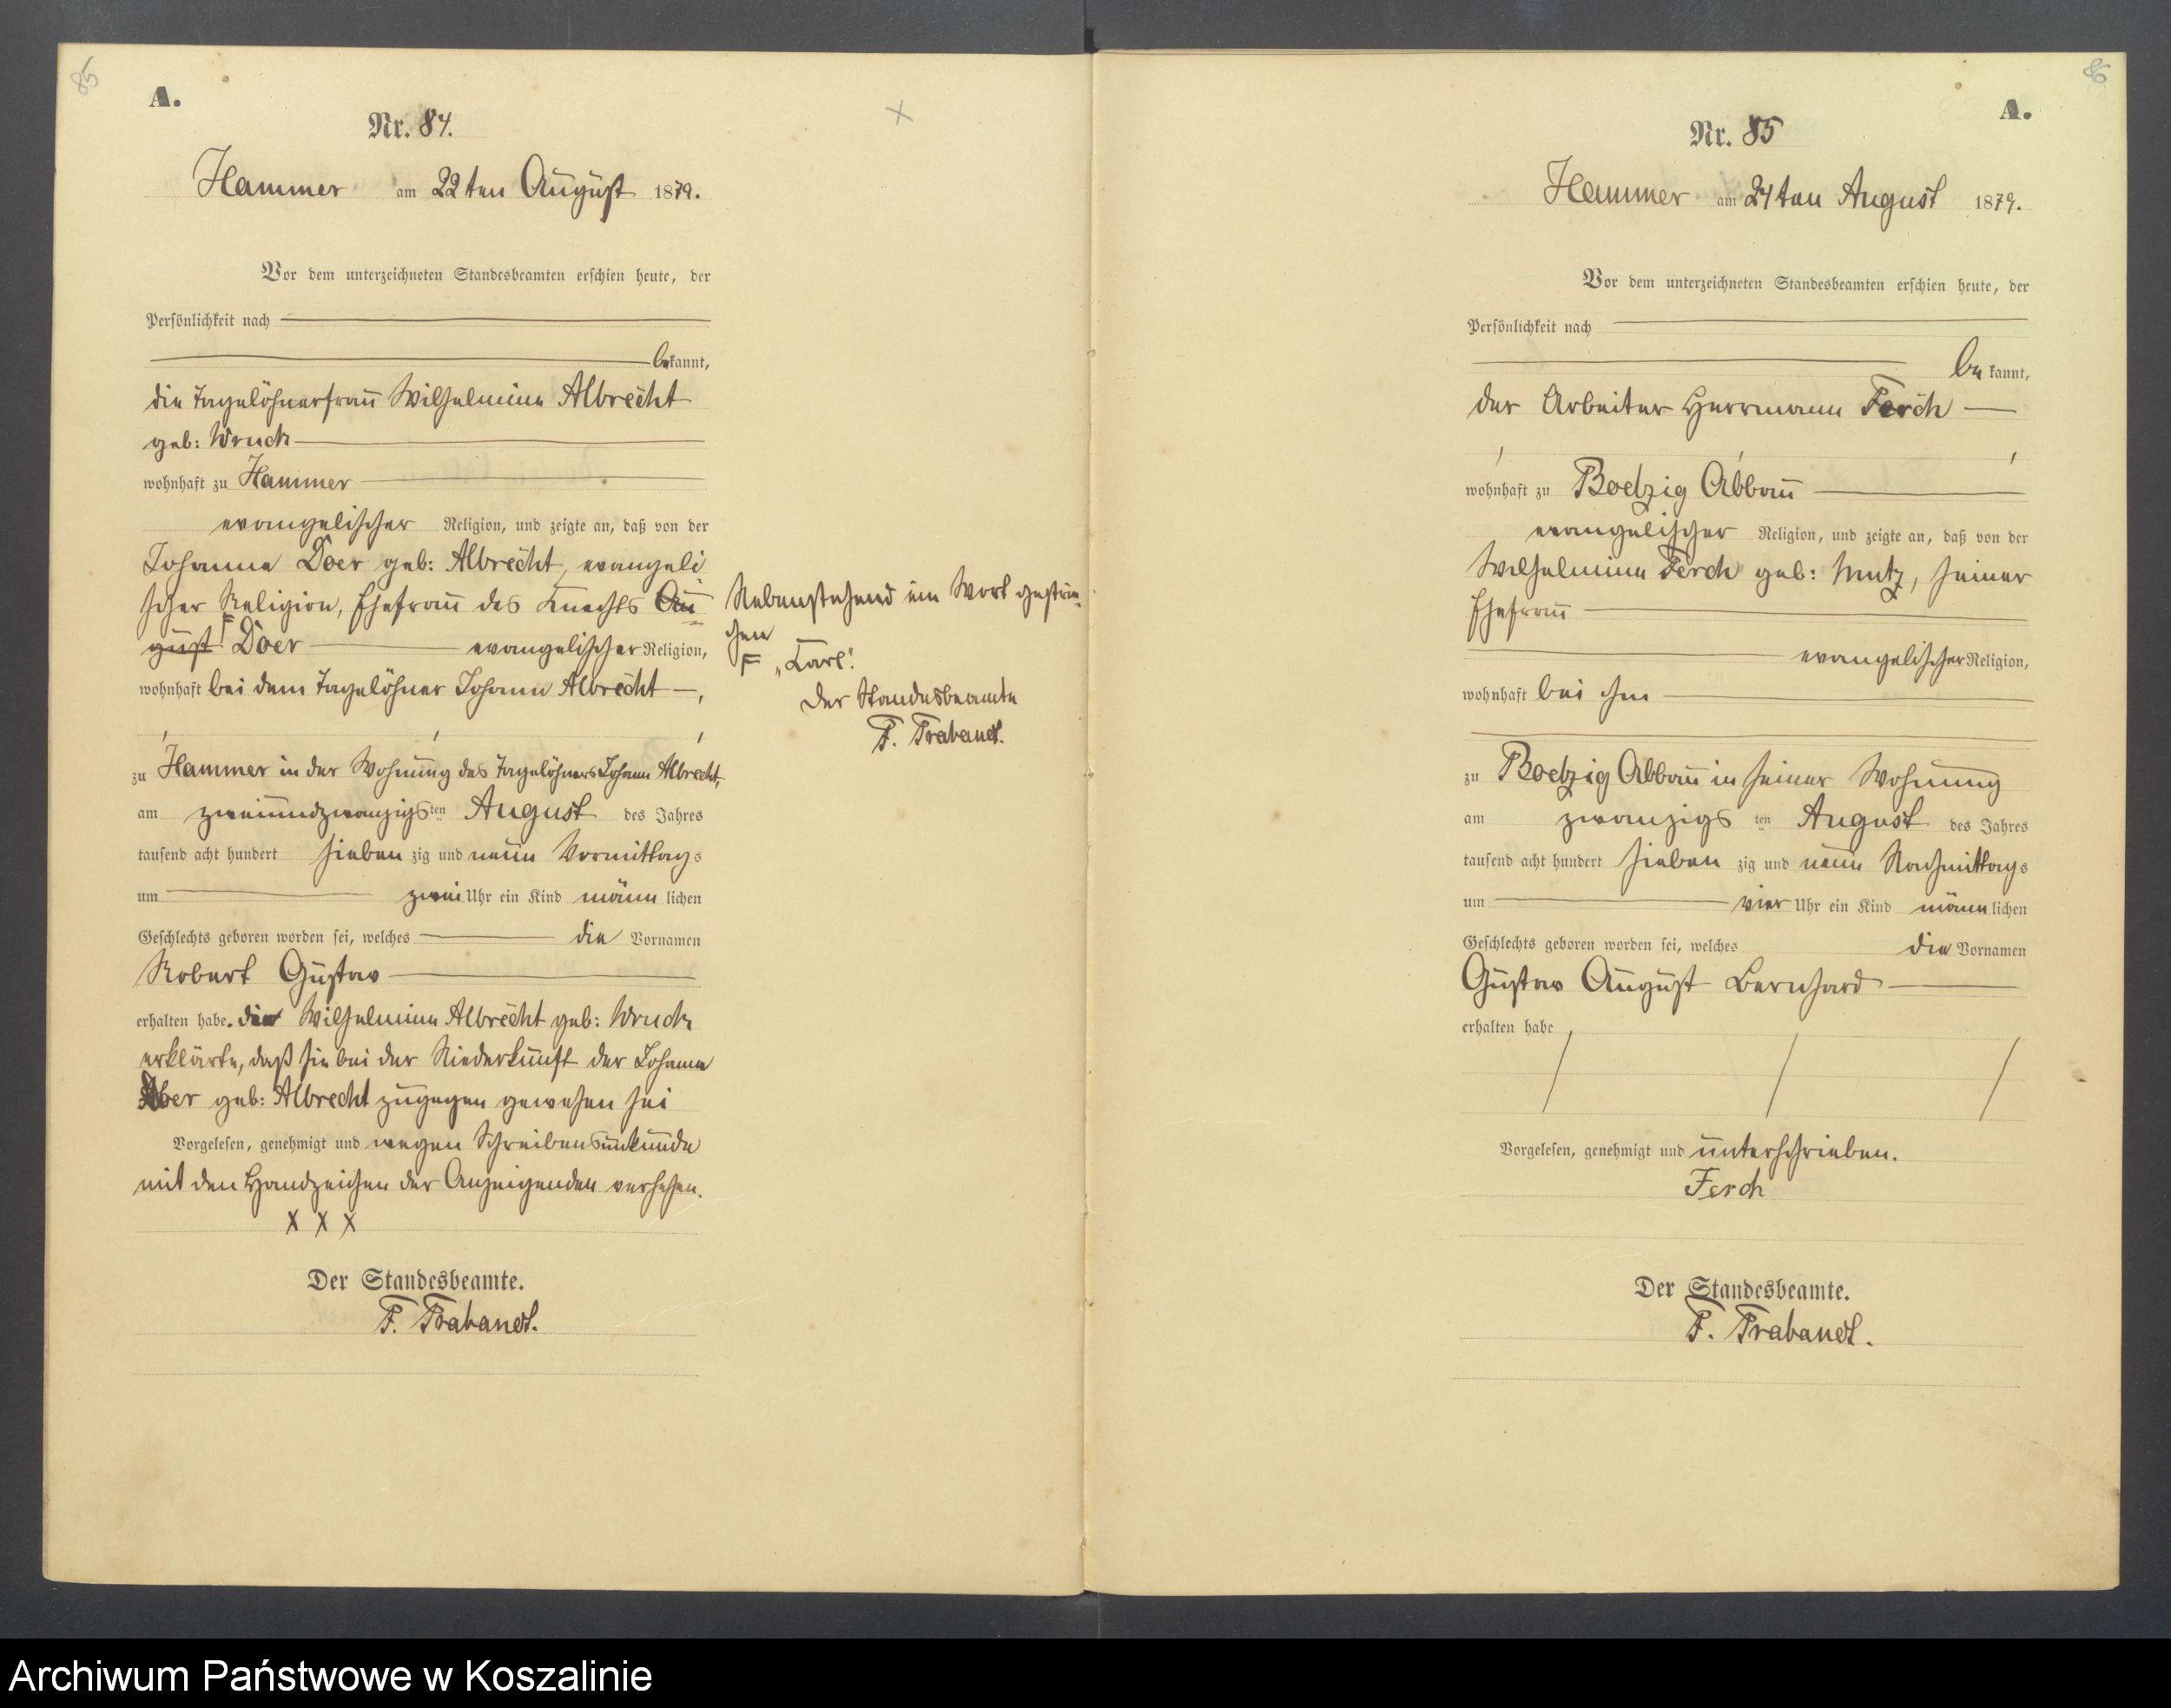 85
A.
Nr. 84.
Hammer am 22ten August 1879.
Vor dem unterzeichneten Standesbeamten erschien heute, der
Persönlichkeit nach
bekannt,
die Tagelöhnerfrau Wilhelmine Albrecht
geb: Wruck
wohnhaft zu Hammer
evangelischer Religion, und zeigte an, daß von der
Johanne Doer geb: Albrecht, evangeli
scher Religion, Ehefrau des Knechts Au
gust F Doer evangelischer Religion,
wohnhaft bei dem Tagelöhner Johann Albrecht,
zu Hammer in der Wohnung des Tagelöhners Johann Albrecht,
am zweiundzwanzigsten August des Jahres
tausend acht hundert sieben zig und neun Vormittags
um zwei Uhr ein Kind männlichen
Geschlechts geboren worden sei, welches die Vornamen
Robert Gustav
erhalten habe. die Wilhelmine Albrecht geb: Wruck
erklärte, daß sie bei der Niederkunft der Johanne
Doer geb: Albrecht zugegen gewesen sei
Vorgelesen, genehmigt und wegen Schreibensunkunde
mit den Handzeichen der Anzeigenden versehen.
X X X
Der Standesbeamte.
F. Trabandt.
Nebenstehend ein Wort gestri-
chen
F „Carl".
Der Standesbeamte
F. Trabandt.
86
A.
Nr. 85
Hammer am 24ten August 1879.
Vor dem unterzeichneten Standesbeamten erschien heute, der
Persönlichkeit nach
bekannt,
der Arbeiter Herrmann Ferch
wohnhaft zu Boetzig Abbau
evangelischer Religion, und zeigte an, daß von der
Wilhelmine Ferch geb: Mutz, seiner
Ehefrau
evangelischer Religion,
wohnhaft bei ihm
zu Boetzig Abbau in seiner Wohnung
am zwanzigsten August des Jahres
tausend acht hundert sieben zig und neun Nachmittags
um vier Uhr ein Kind männlichen
Geschlechts geboren worden sei, welches die Vornamen
Gustav August Bernhard
erhalten habe
Vorgelesen, genehmigt und unterschrieben.
Ferch
Der Standesbeamte.
F. Trabandt.
Archiwum Państwowe w Koszalinie